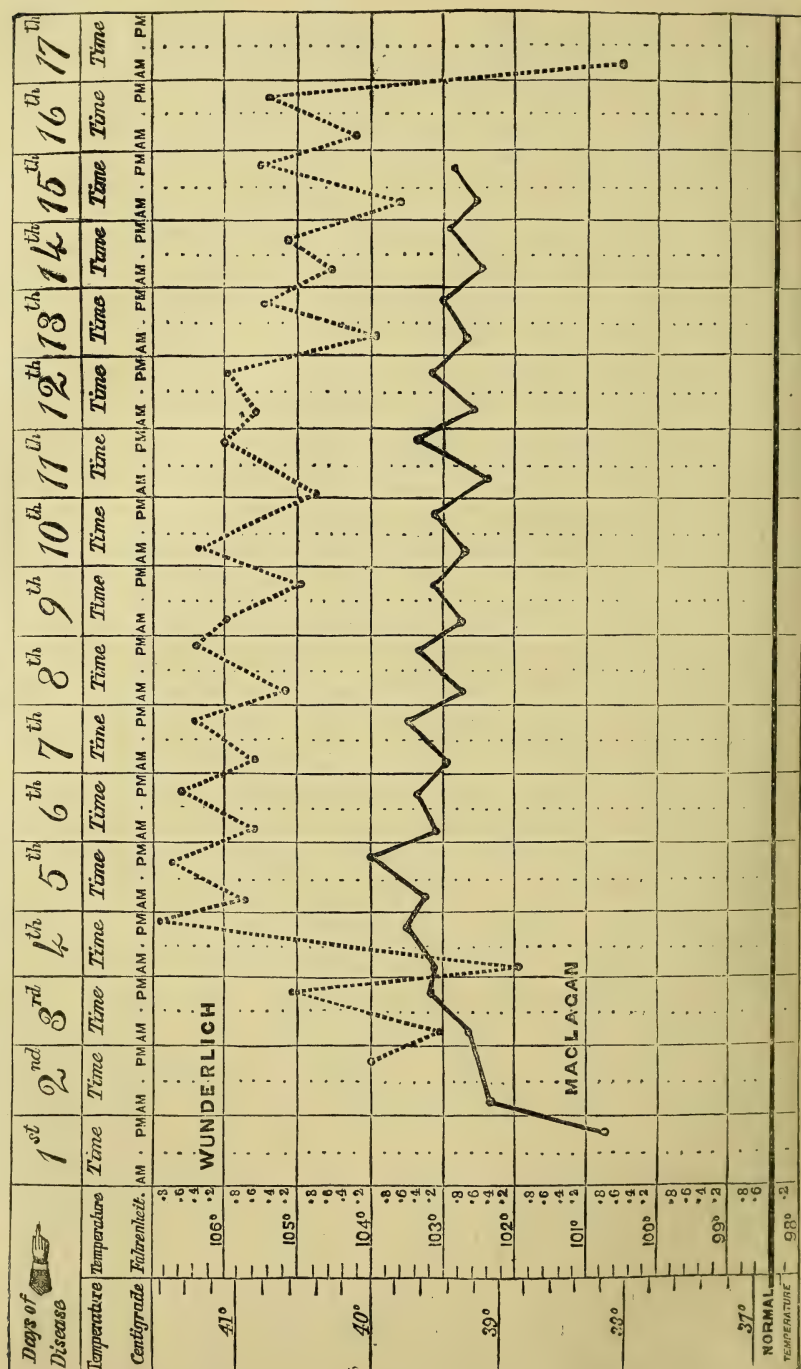 Days of Disease 1st 2nd 3rd 4th 5th 6th 7th 8th 9th 10th 11th 12th 13th 14th 15th 16th 17th
Temperature Temperature Time Time Time Time Time Time Time Time Time Time Time Time Time Time Time Time Time
Centigrade Fahrenheit. AM . PM AM . PM AM . PM AM . PM AM . PM AM . PM AM . PM AM . PM AM . PM AM . PM AM . PM AM . PM AM . PM AM . PM AM . PM AM . PM AM . PM
·8
·6
·4
·2
41° 106° WUNDERLICH
·8
·6
·4
·2
105°
·8
·6
·4
·2
40° 104°
·8
·6
·4
·2
103°
·8
·6
·4
·2
39° 102°
·8
·6
·4
·2
101° MACLAGAN
·8
·6
·4
·2
38° 100°
·8
·6
·4
·2
99°
·8
·6
37°
NORMAL
TEMPERATURE
·2
98°